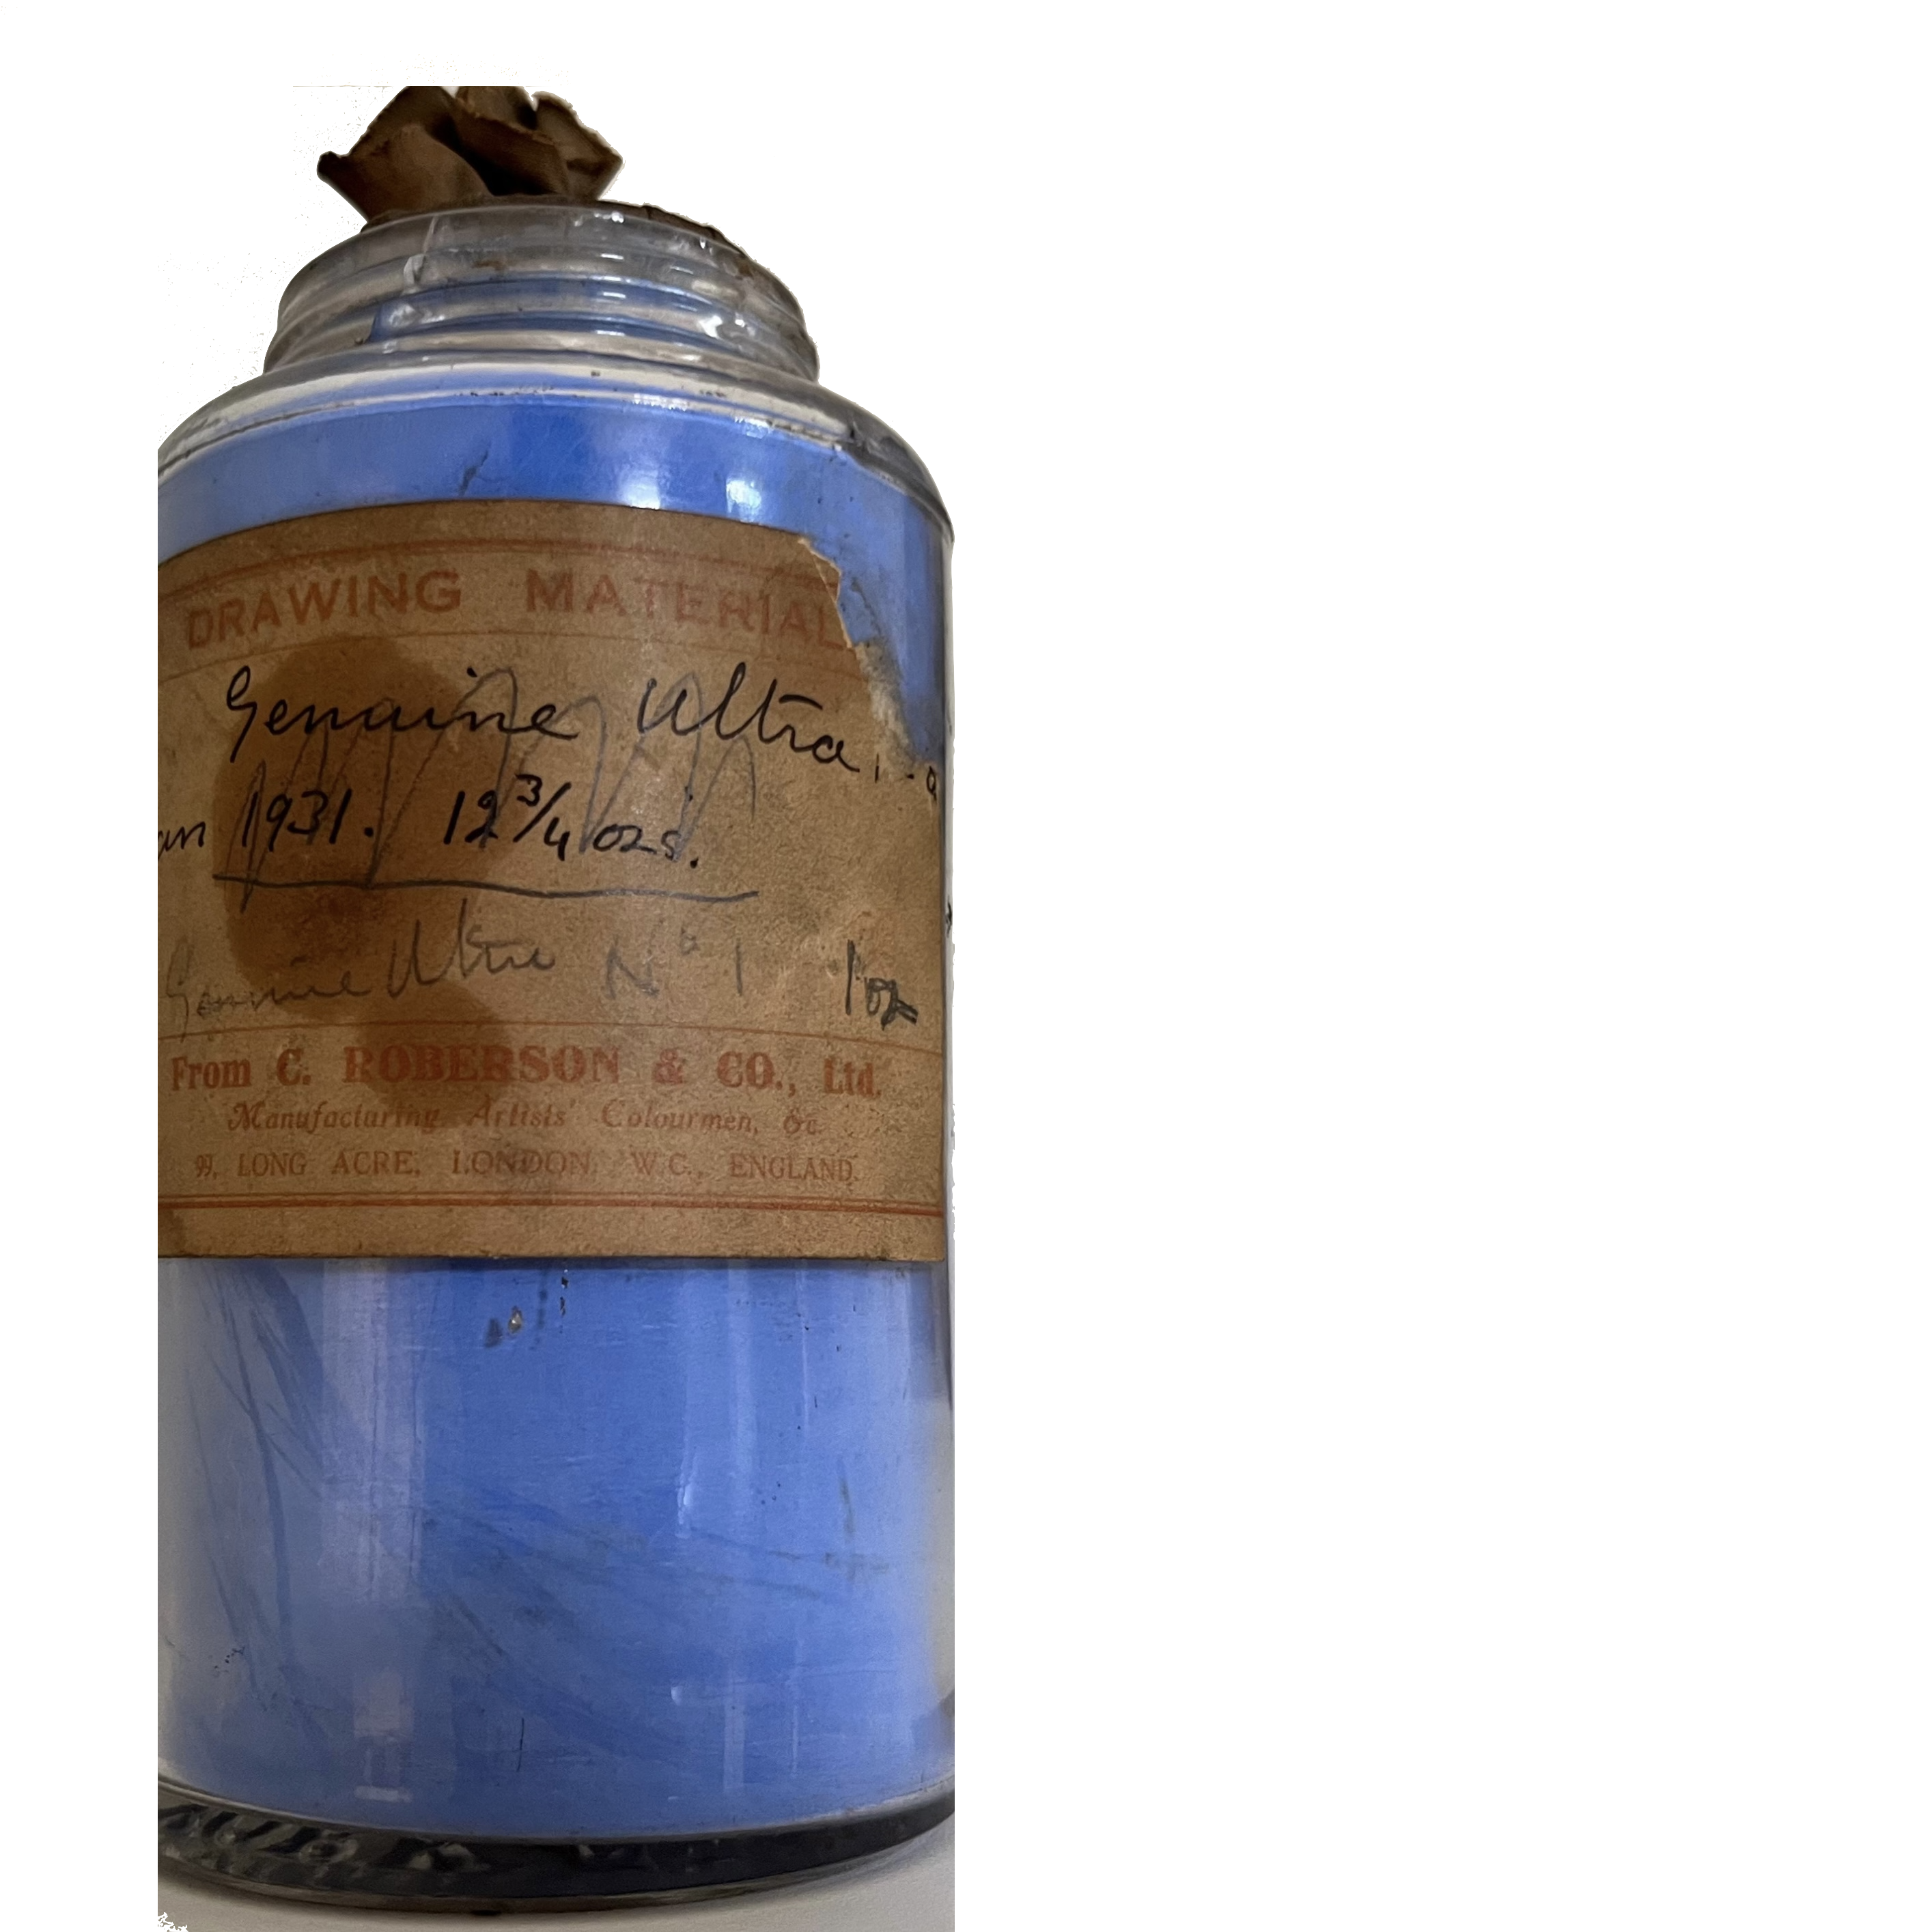 DRAWING MATERIAL
Genuine Ultra
an 1931. 12 3/4 ozs.
Genuine Ultra Nº 1 1 oz
From C. ROBERSON & CO., Ltd.
Manufacturing Artists' Colourmen, &c.
99, LONG ACRE, LONDON, W.C., ENGLAND.